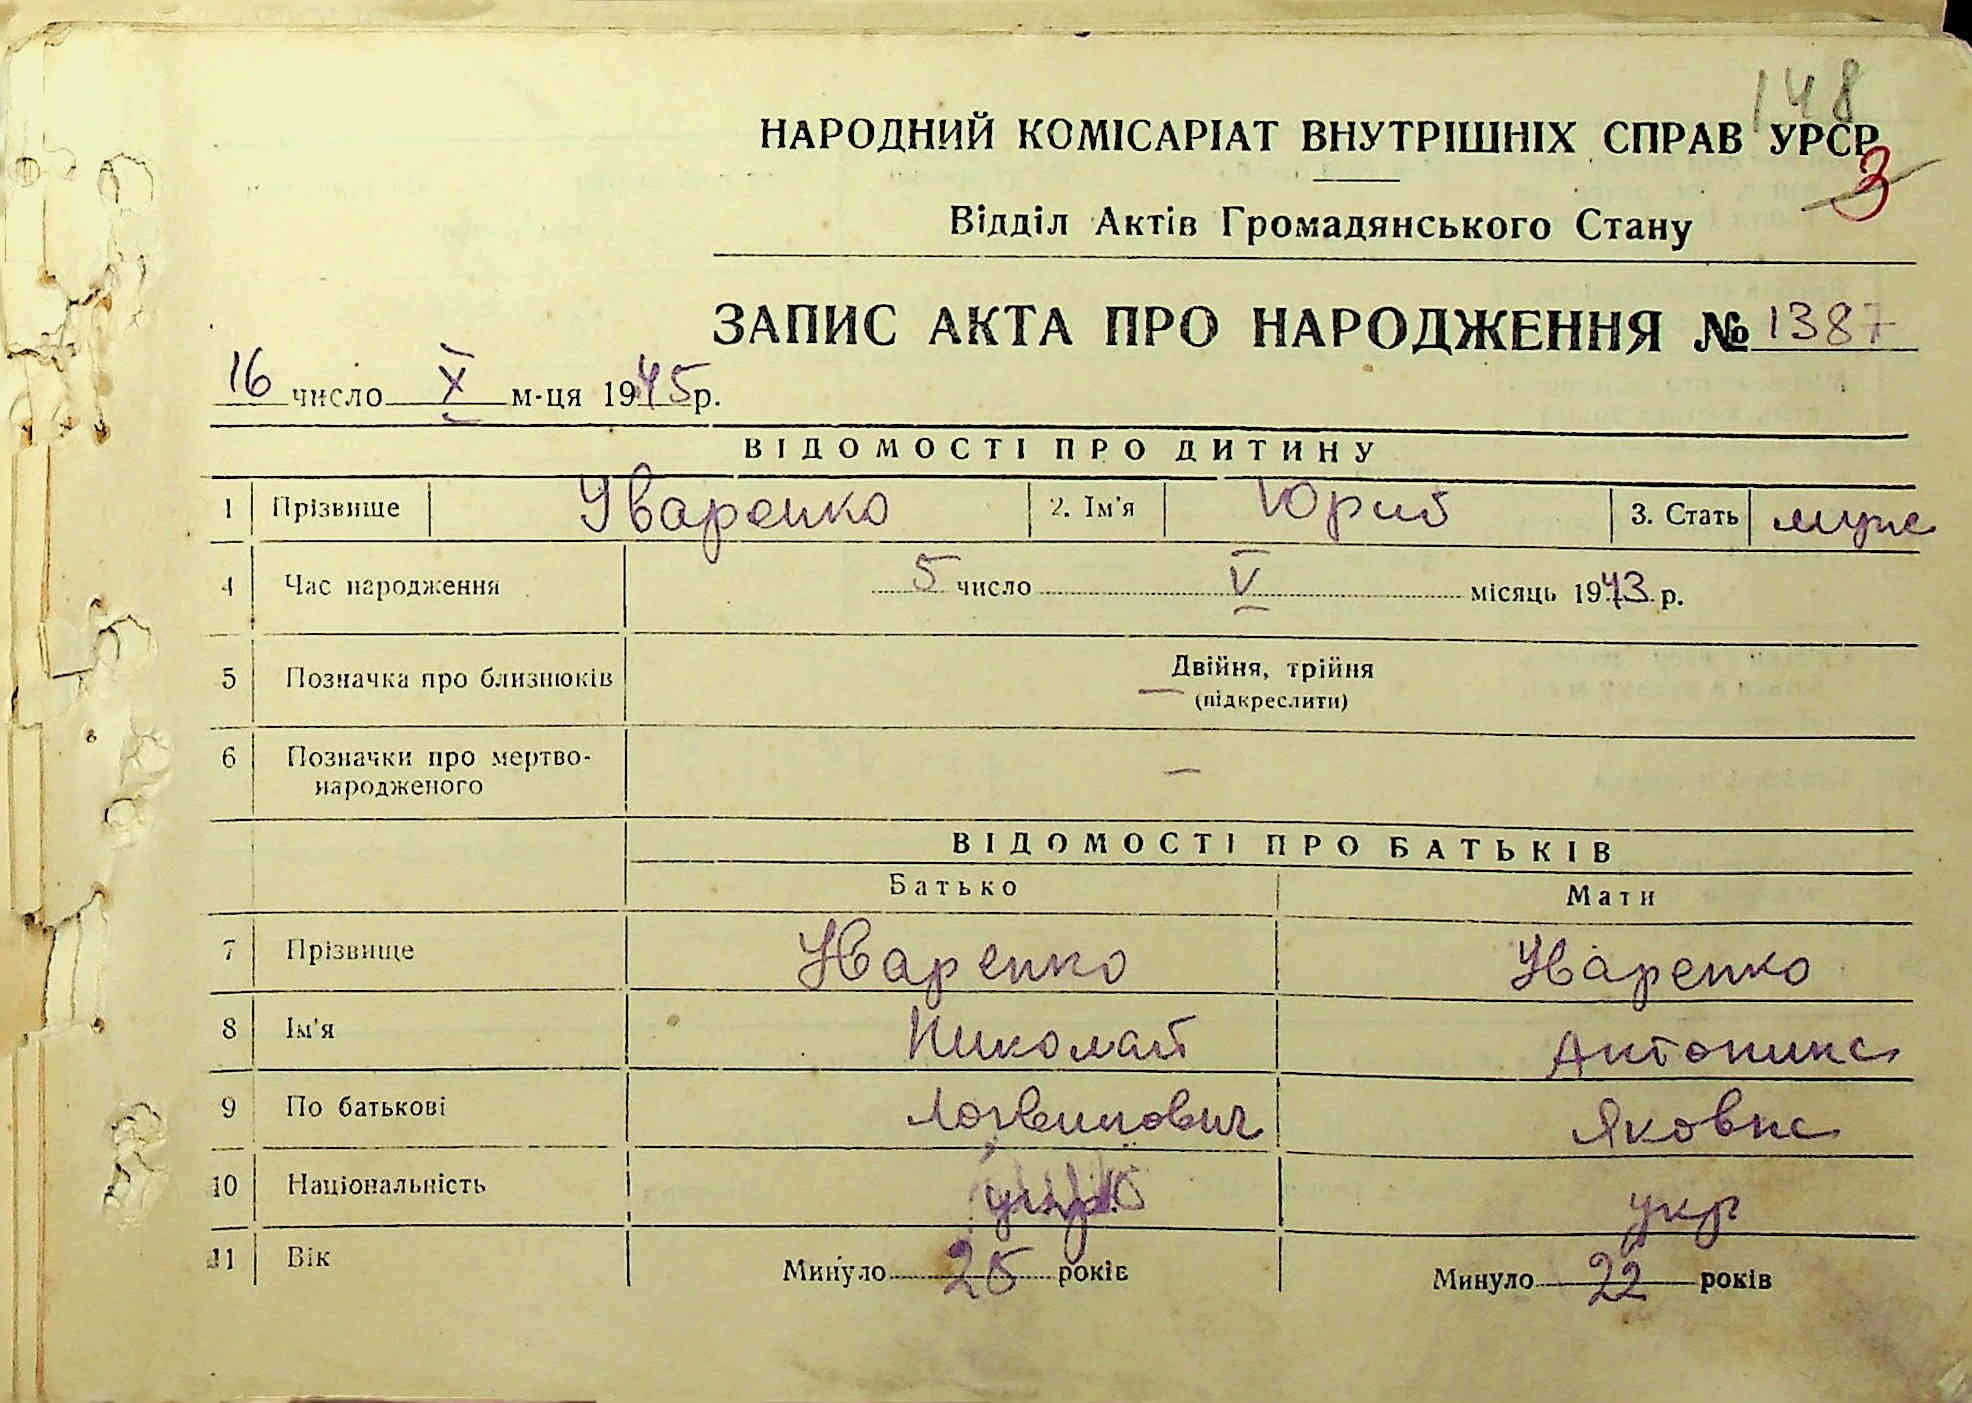 148
НАРОДНИЙ КОМІСАРІАТ ВНУТРІШНІХ СПРАВ УРСР
3
Відділ Актів Громадянського Стану
ЗАПИС АКТА ПРО НАРОДЖЕННЯ № 1387
16 число X м-ця 1945 р.
ВІДОМОСТІ ПРО ДИТИНУ
1 Прізвище Уваренко 2. Ім'я Юрий 3. Стать муж
4 Час народження 5 число V місяць 1943 р.
5 Позначка про близнюків Двійня, трійня
— (підкреслити)
6 Позначки про мертво-
народженого —
ВІДОМОСТІ ПРО БАТЬКІВ
Батько Мати
7 Прізвище Уваренко Уваренко
8 Ім'я Николай Антонина
9 По батькові Логвинович Яковна
10 Національність укр
11 Вік Минуло 25 років Минуло 22 років